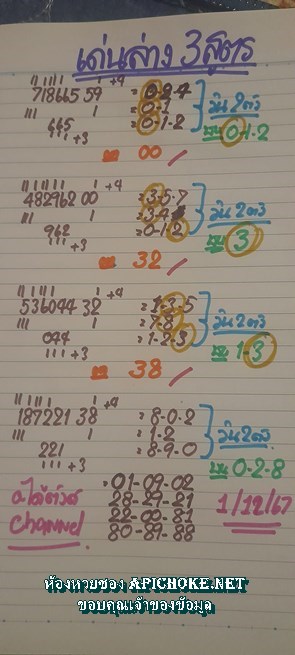 เด่นล่าง 3 สูตร
718665 59 +4 = 0-2-4
= 0-1
665 = 0-1-2
+3
วิน 2 ตัว
0-1-2
00
482962 00 +4 = 3-5-7
= 3-4
962 = 0-1-2
+3
วิน 2 ตัว
3
32
536044 32 +4 = 1-3-5
= 7-8
044 = 1-2-3
+3
วิน 2 ตัว
1-3
38
187221 38 +4 = 8-0-2
= 1-2
221 = 8-9-0
+3
วิน 2 ตัว
0-2-8
01-09-02
28-29-21
22-08-81
80-89-88
Channel
1/12/67
ห้องหวยซอง APICHOKE.NET
ขอบคุณเจ้าของข้อมูล